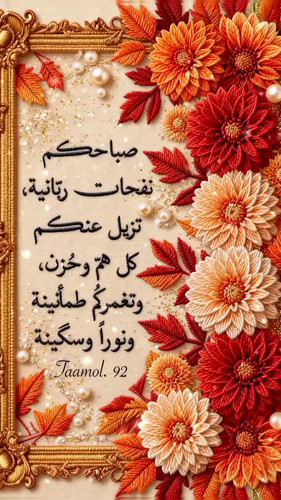 صباحكم
نفحات ربّانية،
تزيل عنكم
كل همّ وحُزن،
وتغمركُم طمأنينة
ونوراً وسكينة
Taamol. 92